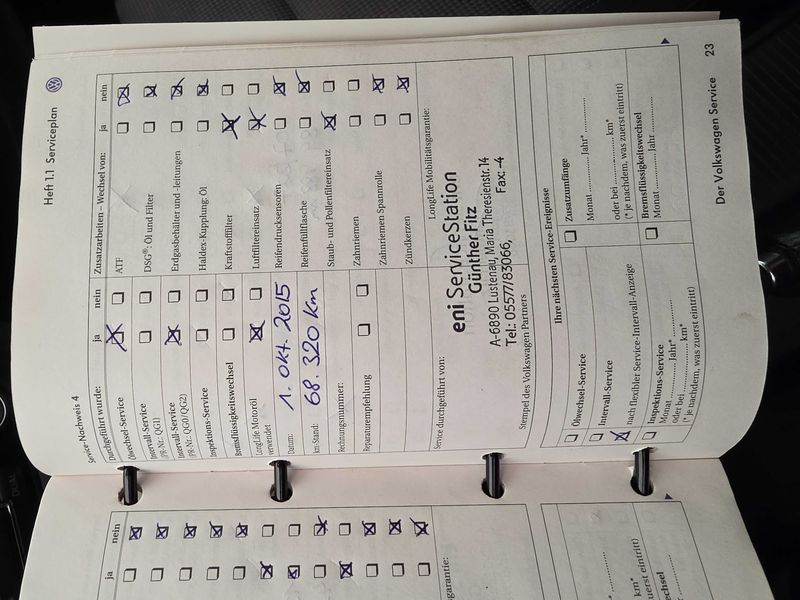 Heft 1.1 Serviceplan
Service-Nachweis 4
Durchgeführt wurde: ja nein
Ölwechsel-Service
Intervall-Service
(PR-Nr.: QG1)
Intervall-Service
(PR-Nr.: QG0/QG2)
Inspektions-Service
Bremsflüssigkeitswechsel
LongLife Motoröl
verwendet
Datum: 1. Okt. 2015
km-Stand: 68.320 km
Rechnungsnummer:
Reparaturempfehlung
Zusatzarbeiten – Wechsel von: ja nein
ATF
DSG®: Öl und Filter
Erdgasbehälter und -leitungen
Haldex-Kupplung: Öl
Kraftstoffilter
Luftfiltereinsatz
Reifendrucksensoren
Reifenfüllflasche
Staub- und Pollenfiltereinsatz
Zahnriemen
Zahnriemen Spannrolle
Zündkerzen
Service durchgeführt von:
LongLife Mobilitätsgarantie:
eni ServiceStation
Günther Fitz
A-6890 Lustenau, Maria Theresienstr.14
Tel: 05577/83066, Fax: -4
Stempel des Volkswagen Partners
Ihre nächsten Service-Ereignisse
Ölwechsel-Service
Intervall-Service
nach flexibler Service-Intervall-Anzeige
Inspektions-Service
Monat ............ Jahr* ............
oder bei ............ km*
(* je nachdem, was zuerst eintritt)
Zusatzumfänge
Monat ............ Jahr* ............
oder bei ............ km*
(* je nachdem, was zuerst eintritt)
Bremsflüssigkeitswechsel
Monat ............ Jahr ............
Der Volkswagen Service 23
ja nein
garantie:
km*
zuerst eintritt)
wechsel